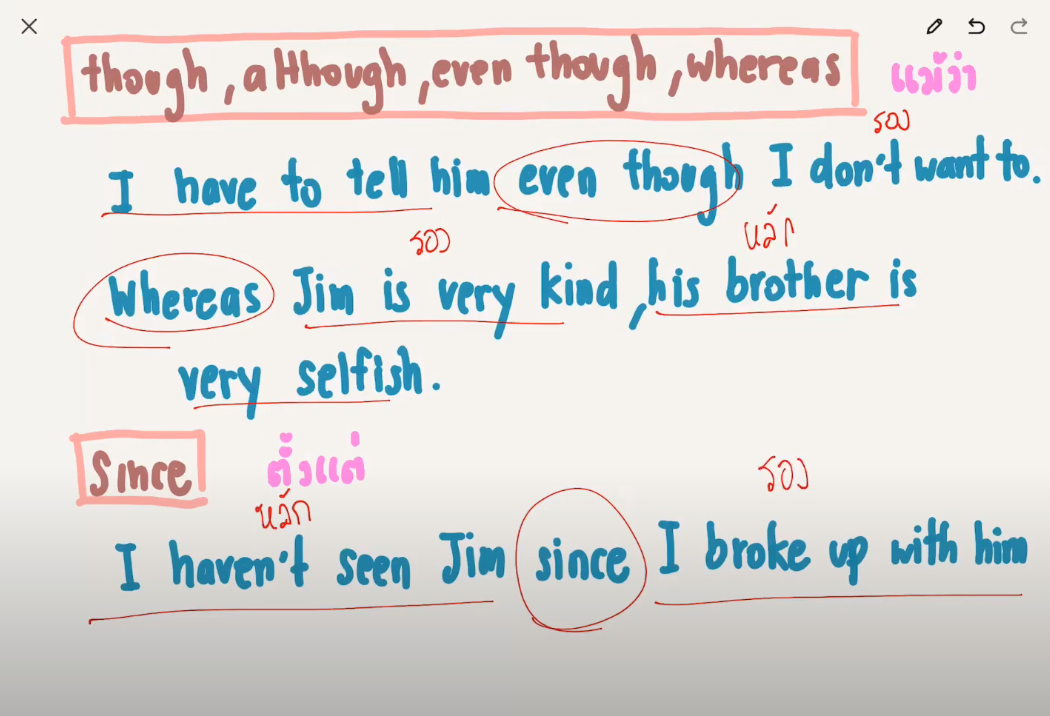 though, although, even though, whereas แม้ว่า
รอง
I have to tell him even though I don't want to.
รอง หลัก
Whereas Jim is very kind, his brother is
very selfish.
Since ตั้งแต่
หลัก รอง
I haven't seen Jim since I broke up with him